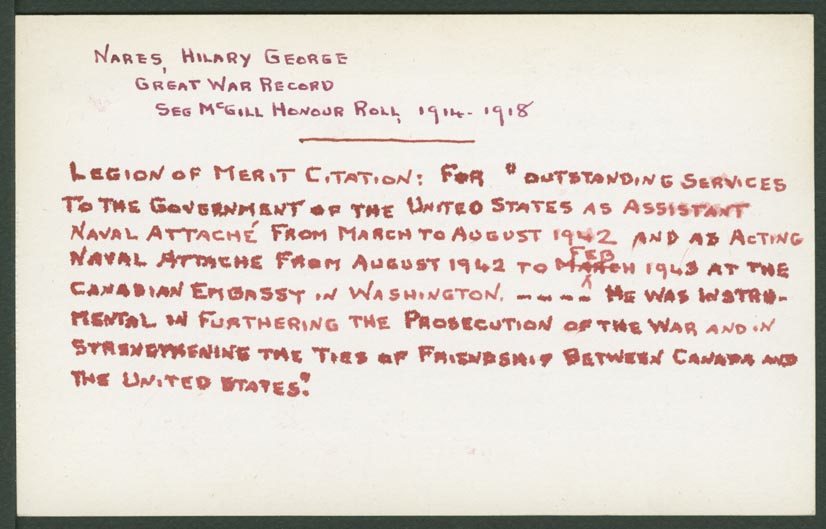 NARES, HILARY GEORGE
GREAT WAR RECORD
SEE McGILL HONOUR ROLL, 1914-1918
LEGION OF MERIT CITATION: FOR "OUTSTANDING SERVICES
TO THE GOVERNMENT OF THE UNITED STATES AS ASSISTANT
NAVAL ATTACHÉ FROM MARCH TO AUGUST 1942 AND AS ACTING
NAVAL ATTACHE FROM AUGUST 1942 TO MARCH FEB 1943 AT THE
CANADIAN EMBASSY IN WASHINGTON. ---- HE WAS INSTRU-
MENTAL IN FURTHERING THE PROSECUTION OF THE WAR AND IN
STRENGTHENING THE TIES OF FRIENDSHIP BETWEEN CANADA AND
THE UNITED STATES".